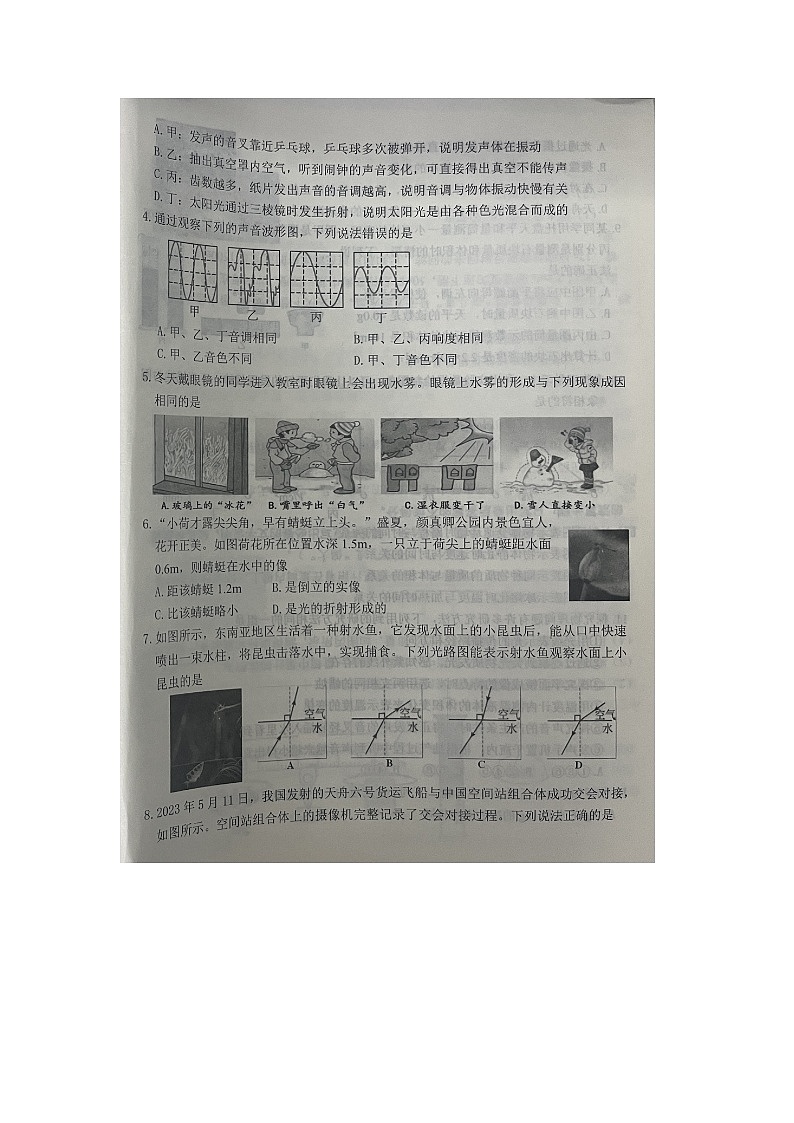 A.甲：发声的音叉靠近乒乓球，乒乓球多次被弹开，说明发声体在振动
B.乙：抽出真空罩内空气，听到闹钟的声音变化，可直接得出真空不能传声
C.丙：齿数越多，纸片发出声音的音调越高，说明音调与物体振动快慢有关
D.丁：太阳光通过三棱镜时发生折射，说明太阳光是由各种色光混合而成的
4.通过观察下列的声音波形图，下列说法错误的是
甲 乙 丙 丁
A.甲、乙、丁音调相同 B.甲、乙、丙响度相同
C.甲、乙音色不同 D.甲、丁音色不同
5.冬天戴眼镜的同学进入教室时眼镜上会出现水雾。眼镜上水雾的形成与下列现象成因
相同的是
A.玻璃上的“冰花” B.嘴里呼出“白气” C.湿衣服变干了 D.雪人直接变小
6.“小荷才露尖尖角，早有蜻蜓立上头。”盛夏，颜真卿公园内景色宜人，
花开正美。如图荷花所在位置水深1.5m，一只立于荷尖上的蜻蜓距水面
0.6m，则蜻蜓在水中的像
A.距该蜻蜓1.2m B.是倒立的实像
C.比该蜻蜓略小 D.是光的折射形成的
7.如图所示，东南亚地区生活着一种射水鱼，它发现水面上的小昆虫后，能从口中快速
喷出一束水柱，将昆虫击落水中，实现捕食。下列光路图能表示射水鱼观察水面上小
昆虫的是
空气 空气 空气 空气
水 水 水 水
A B C D
8.2023年5月11日，我国发射的天舟六号货运飞船与中国空间站组合体成功交会对接，
如图所示。空间站组合体上的摄像机完整记录了交会对接过程。下列说法正确的是